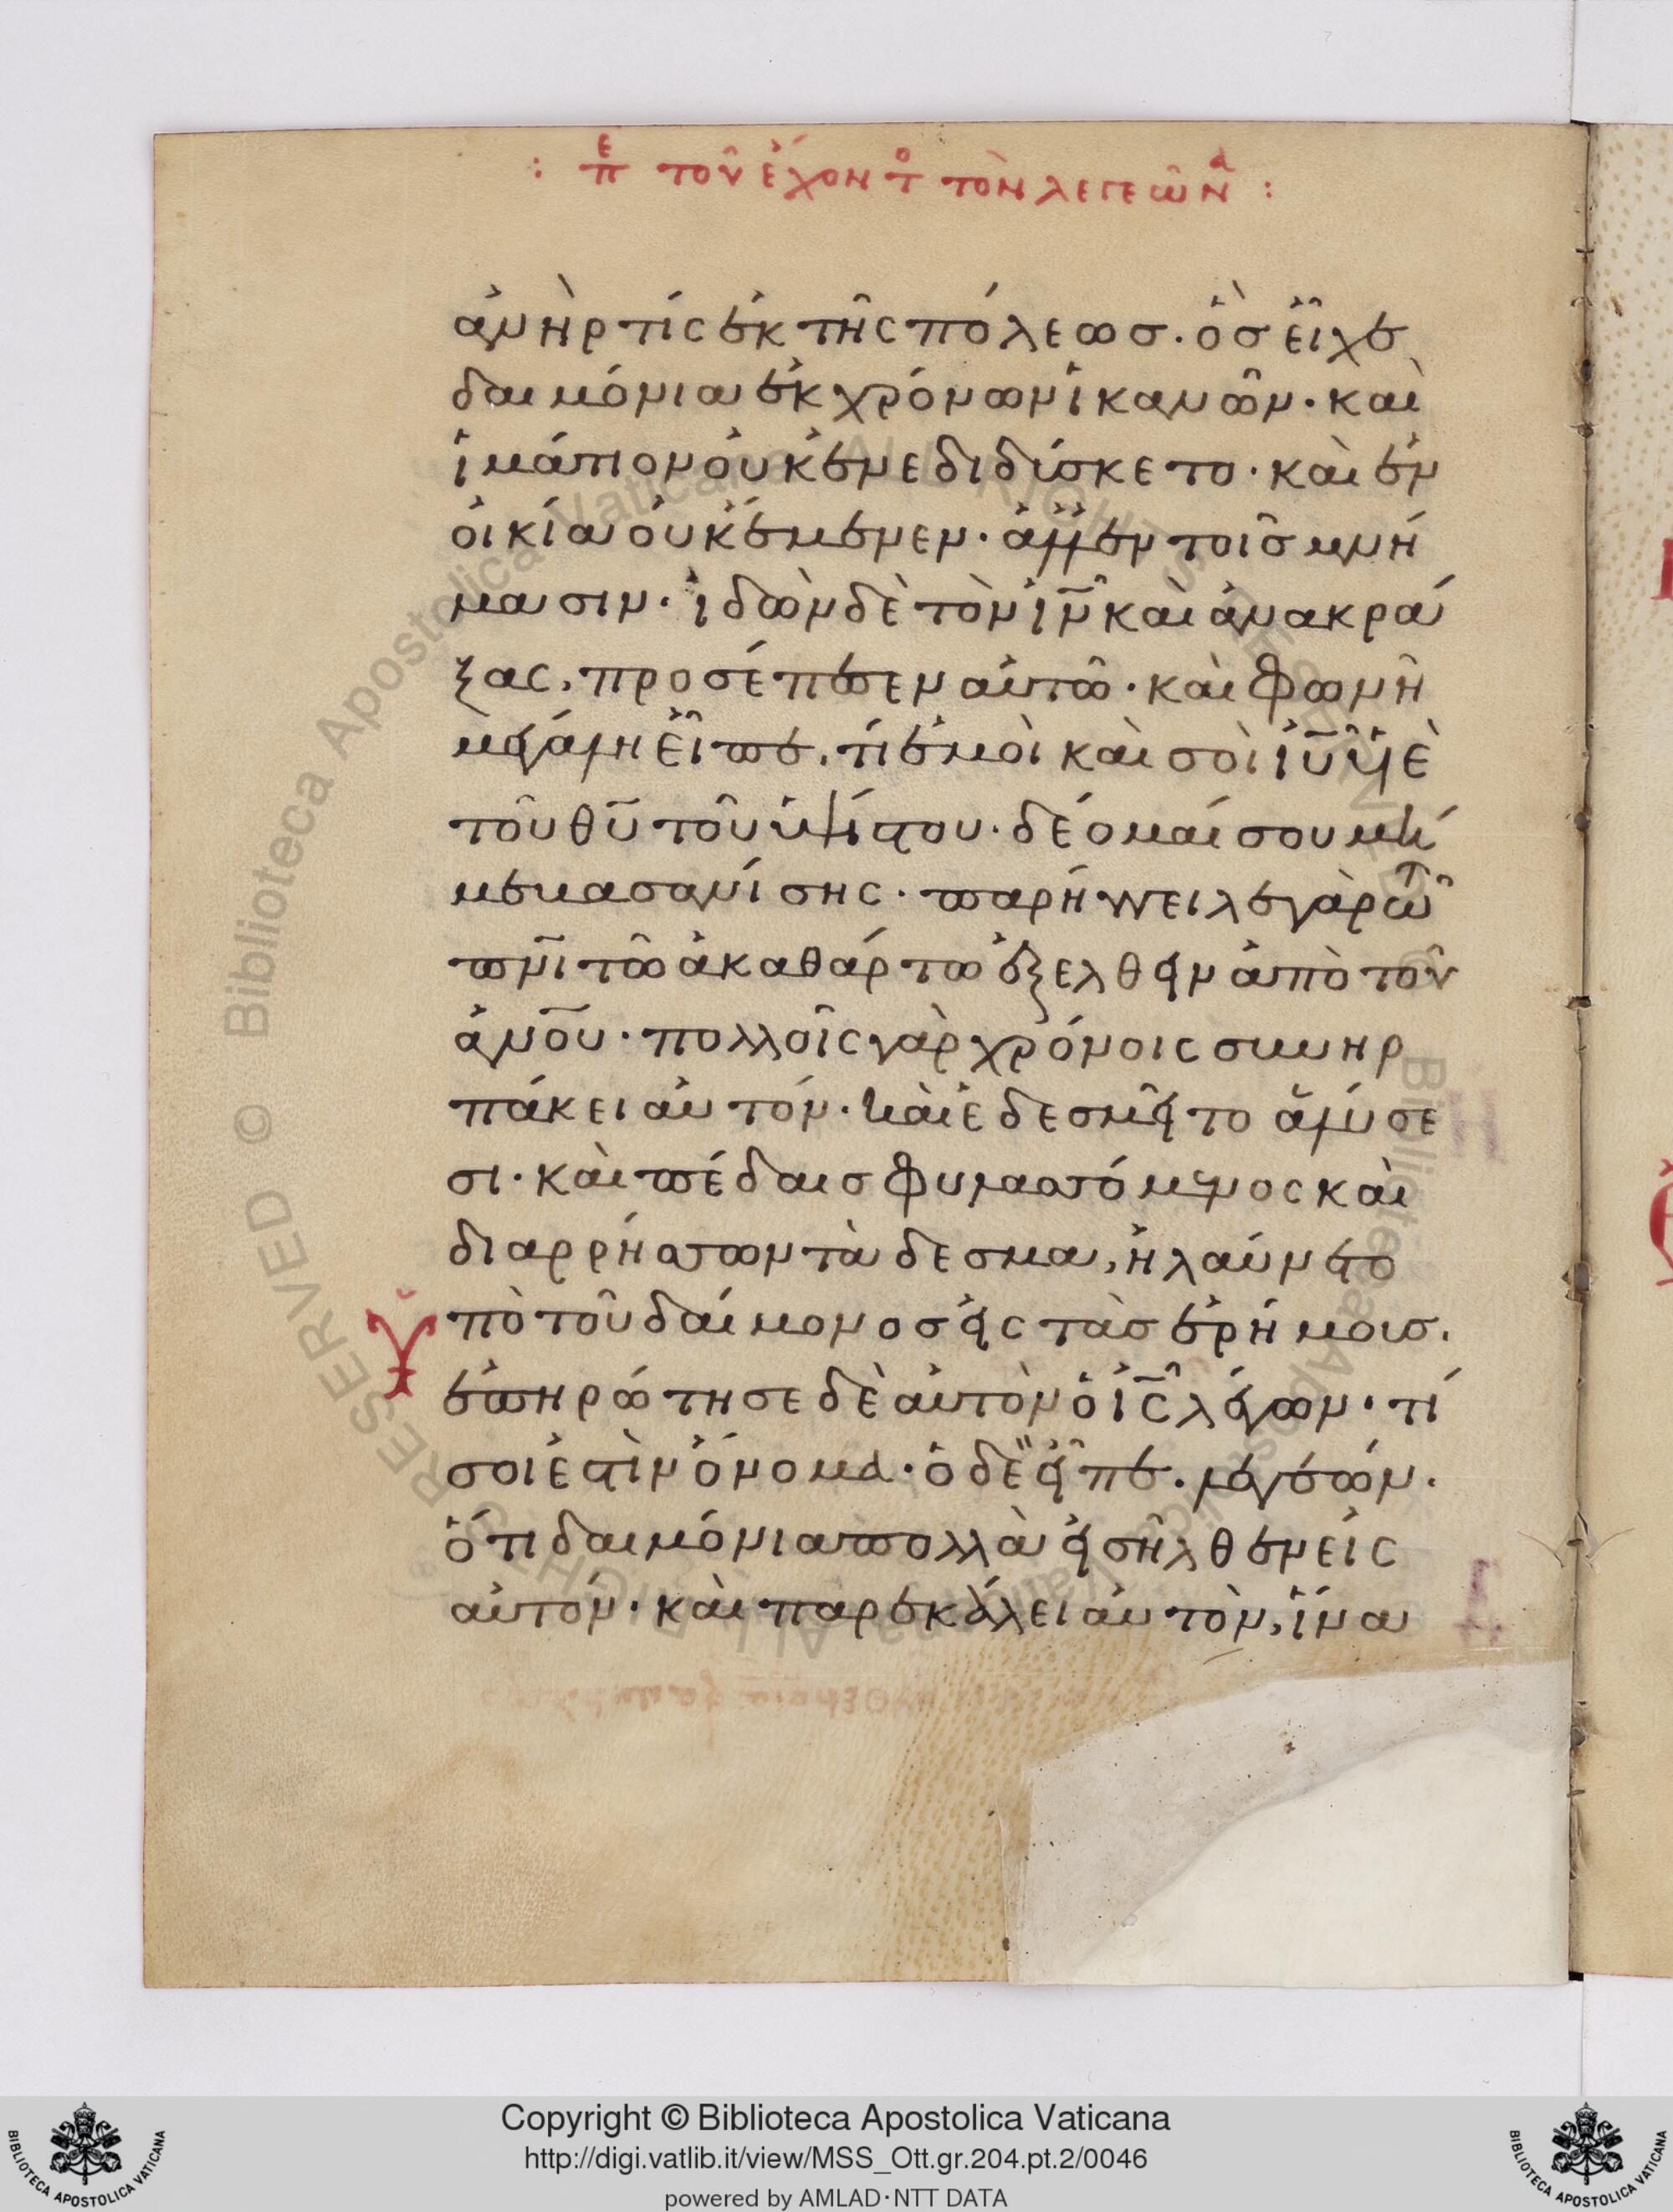 : πε τοῦ ἔχοντο τὸν λεγεῶνα :
ἀνὴρ τίς ἐκ τῆς πόλεωσ. ὃσ εἶχε
δαιμόνια ἐκ χρόνων ἱκανῶν. καὶ
ἱμάτιον οὐκ ἐνεδιδύσκετο. καὶ ἐν
οἰκία οὐκ ἔμενεν. ἀλλ' ἐν τοῖσ μνή
μασιν. ἰδὼν δὲ τὸν ιν καὶ ἀνακρά
ξας, προσέπεσεν αὐτῶ. καὶ φωνῆ
μεγάλη εἶπε, τί ἐμοὶ καὶ σοὶ ιυ υἱὲ
τοῦ θυ τοῦ ὑψίστου. δέομαί σου μή
με βασανίσης. παρήγγειλε γὰρ τῶ
πνι τῶ ἀκαθάρτω ἐξελθεῖν ἀπὸ τοῦ
ἀνου. πολλοῖς γὰρ χρόνοις συνηρ
πάκει αὐτόν. καὶ ἐδεσμεῖτο ἁλύσε
σι. καὶ πέδαισ φυλασσόμενος καὶ
διαρρήσσων τὰ δεσμα, ἠλαύνετο
ὑπὸ τοῦ δαίμονοσ εἰς τὰσ ἐρήμουσ.
ἐπηρώτησε δὲ αὐτὸν ὁ ις λέγων. τί
σοι ἐστὶν ὄνομα. ὁ δὲ εἶπε. λεγεών.
ὅτι δαιμόνια πολλὰ εἰσῆλθεν εἰς
αὐτόν. καὶ παρεκάλει αὐτὸν, ἵνα
Copyright © Biblioteca Apostolica Vaticana
http://digi.vatlib.it/view/MSS_Ott.gr.204.pt.2/0046
powered by AMLAD·NTT DATA